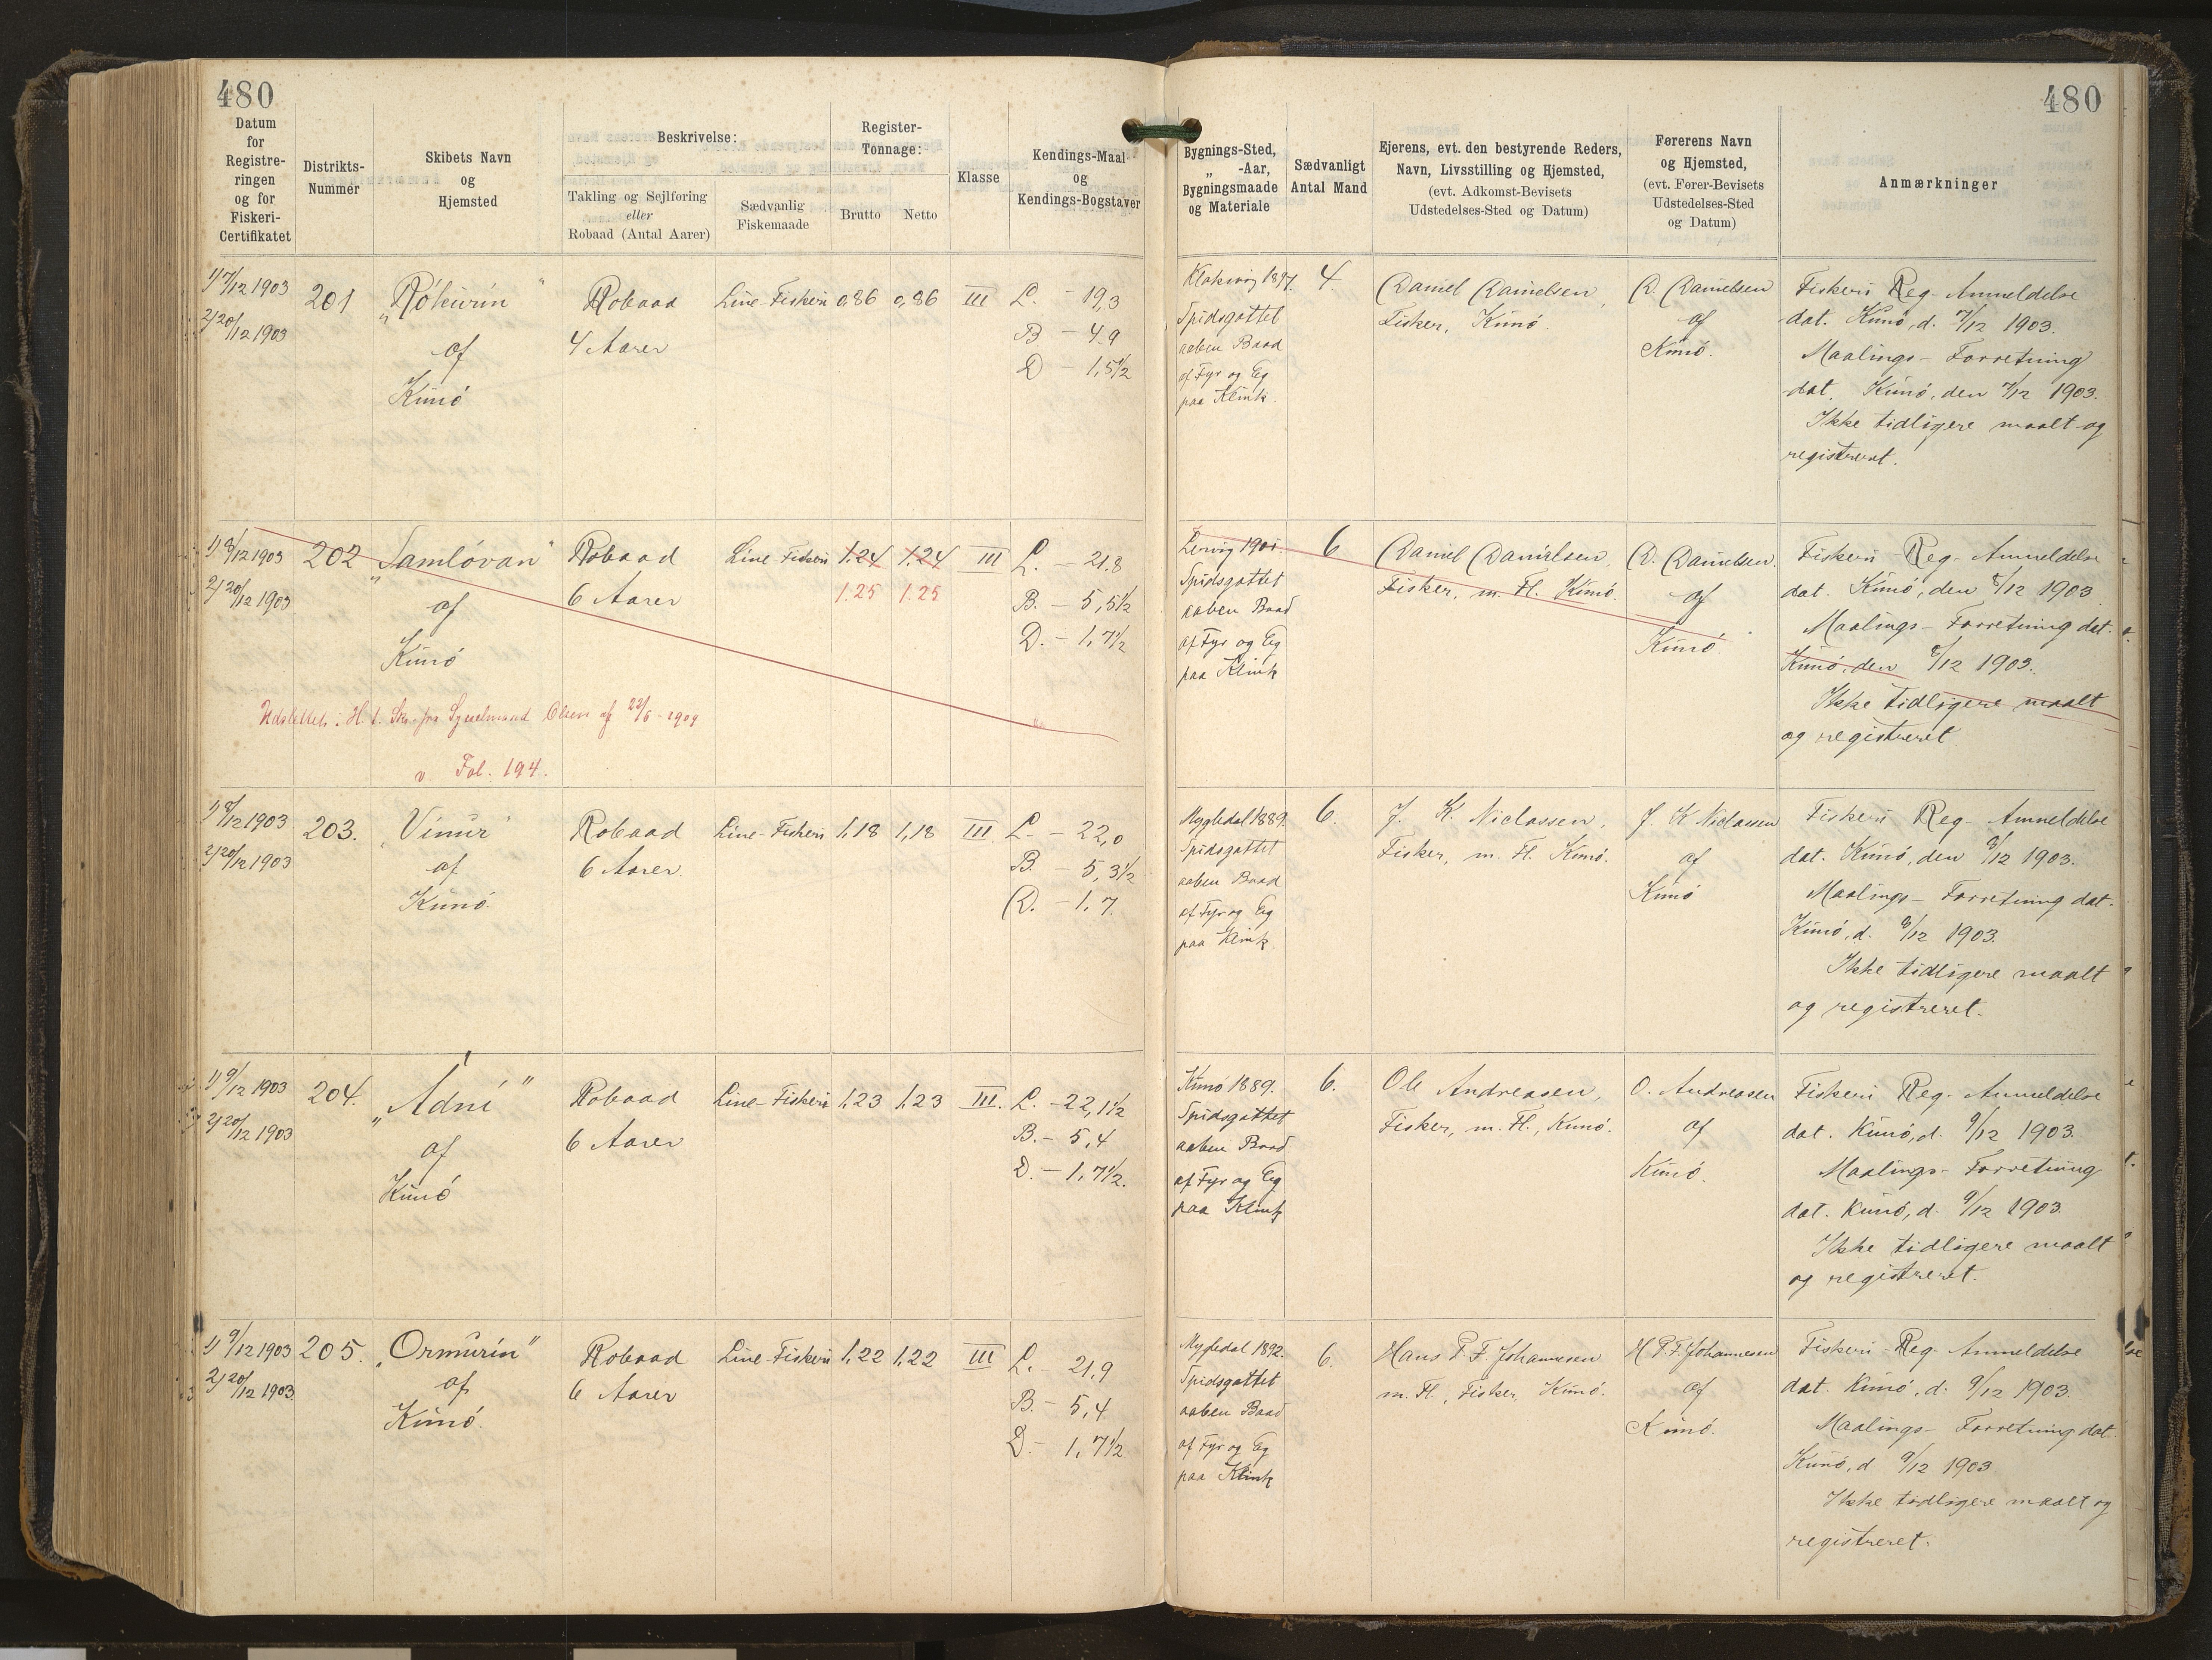 480
480
Datum
for
Registre-
ringen
og for
Fiskeri-
Certifikatet
Distrikts-
Nummer
Skibets Navn
og
Hjemsted
Beskrivelse:
Takling og Sejlføring
eller
Robaad (Antal Aarer)
Sædvanlig
Fiskemaade
Register-
Tonnage:
Brutto
Netto
Klasse
Kendings-Maal
og
Kendings-Bogstaver
Bygnings-Sted,
„ -Aar,
Bygningsmaade
og Materiale
Sædvanligt
Antal Mand
Ejerens, evt. den bestyrende Reders,
Navn, Livsstilling og Hjemsted,
(evt. Adkomst-Bevisets
Udstedelses-Sted og Datum)
Førerens Navn
og Hjemsted,
(evt. Fører-Bevisets
Udstedelses-Sted
og Datum)
Anmærkninger
1) 7/12 1903
2) 20/12 1903
201
„Rókurin"
af
Kunö
Robaad
4 Aarer
Line-Fiskeri
0,86
0,86
III
L. - 19,3
B - 4.9
D - 1,5½
Klaksvig 1897.
Spidsgattet
aaben Baad
af Fyr og Eg
paa Klink.
4.
Daniel Danielsen,
Fisker, Kunö.
D. Danielsen
af
Kunö.
Fiskeri Reg- Anmeldelse
dat. Kunö, d. 7/12 1903.
Maalings- Forretning
dat. Kunö, den 7/12 1903.
Ikke tidligere maalt og
registreret.
1) 8/12 1903
2) 20/12 1903
202
„Samlóvan"
af
Kunö
Robaad
6 Aarer
Line-Fiskeri
1.24
1.24
1.25
1.25
III
L. - 21.8
B. - 5,5½
D. - 1,7½
Udslettet i H. t. Skr. fra Sysselmand Olsen af 22/5-1909
v. Fol. 194.
Lervig 1901.
Spidsgattet
aaben Baad
af Fyr og Eg
paa Klink
6
Daniel Danielsen,
Fisker, m. Fl. Kunö.
D. Danielsen.
af
Kunö.
Fiskeri Reg- Anmeldelse
dat. Kunö, den 8/12 1903
Maalings- Forretning dat.
Kunö, den 8/12 1903.
Ikke tidligere maalt
og registreret
1) 8/12 1903
2) 20/12 1903
203.
„Vinur"
af
Kunö.
Robaad
6 Aarer.
Line-Fiskeri
1,18
1,18
III.
L. - 22,0
B. - 5,3½
D. - 1,7.
Mygledal 1889.
Spidsgattet
aaben Baad
af Fyr og Eg
paa Klink.
6.
J. K. Niclassen,
Fisker, m. Fl. Kunö.
J. K Niclassen
af
Kunö
Fiskeri Reg- Anmeldelse
dat. Kunö, den 8/12 1903.
Maalings- Forretning dat.
Kunö, d. 8/12 1903.
Ikke tidligere maalt
og registreret.
1) 9/12 1903
2) 20/12 1903
204.
„Adni"
af
Kunö
Robaad
6 Aarer
Line-Fiskeri
1,23
1,23
III.
L. - 22,1½
B. - 5,4
D. - 1,7½.
Kunö 1889.
Spidsgattet
aaben Baad
af Fyr og Eg
paa Klink
6.
Ole Andreasen,
Fisker, m. Fl., Kunö.
O. Andreasen
af
Kunö.
Fiskeri Reg. Anmeldelse
dat. Kunö, d. 9/12 1903.
Maalings- Forretning
dat. Kunö, d. 9/12 1903.
Ikke tidligere maalt
og registreret.
1) 9/12 1903
2) 20/12 1903.
205.
„Ormurin"
af
Kunö.
Robaad
6 Aarer
Line-Fiskeri
1,22
1,22
III
L. - 21,9
B. - 5,4
D. - 1,7½
Mygledal 1892.
Spidsgattet
aaben Baad
af Fyr og Eg
paa Klink
6.
Hans P. F. Johannesen
m. Fl., Fisker, Kunö.
H P. F. Johannesen
af
Kunö.
Fiskeri-Reg- Anmeldelse
dat. Kunö, d. 9/12 1903.
Maalings- Forretning dat.
Kunö, d 9/12 1903
Ikke tidligere maalt og
registreret.